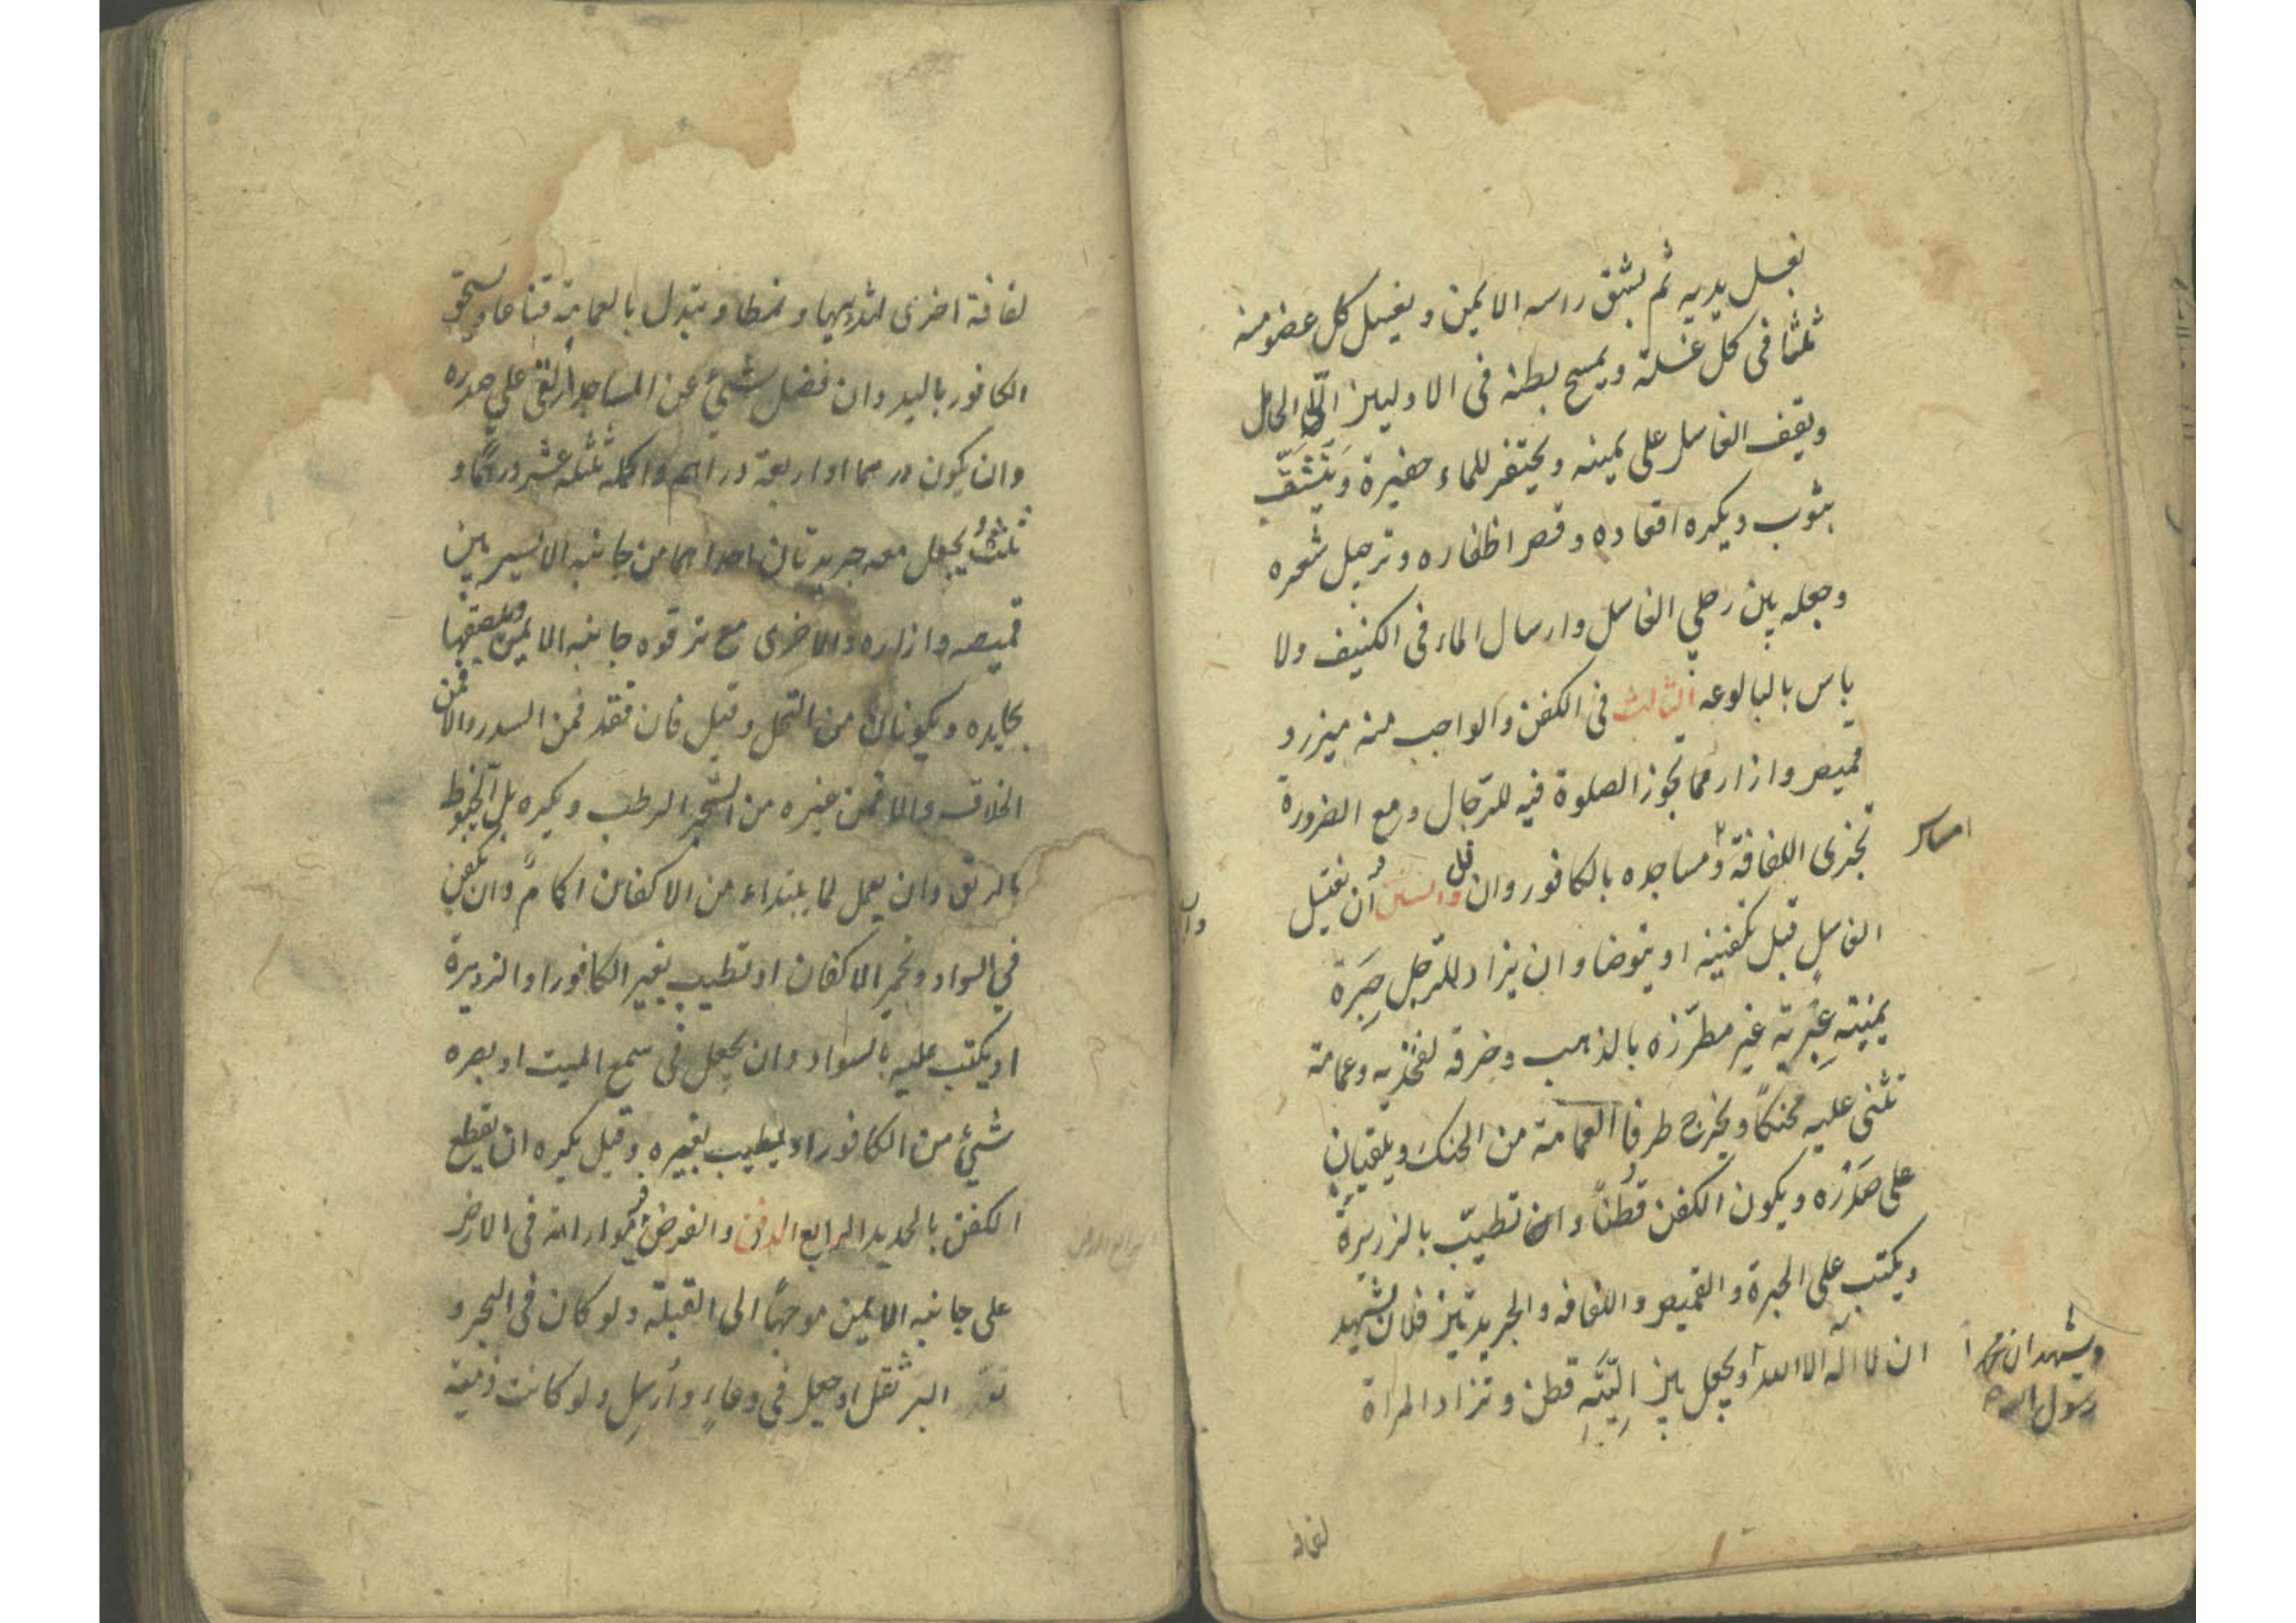 يغسل يديه ثم بشق راسه الايمن و يغسل كل عضو منه
ثلثا فى كل غسلة ويمسح بطنه فى الاوليين الا الحامل
ويقف الغاسل على يمينه ويحتفر للماء حفيرة وَيُنَشَّف
بثوب ويكره اقعاده وقص اظفاره وترجيل شعره
وجعله بين رجلي الغاسل وارسال الماء فى الكنيف ولا
باس بالبالوعه الثالث فى الكفن والواجب منه ميزر و
قميص وازار مما تجوز الصلوة فيه للرّجال ومع الضرورة
تجزى اللفافة و مساجده بالكافور وان قل والسنن ان يغتسل
امساس
الغاسل قبل تكفينه او يتوضا وان يزاد للرّجل حِبَرَة
يمنيّته عِبْرِيّة غير مطرّزه بالذهب وخرقه لفخذيه وعمامة
تثنى عليه محنكًا ويخرج طرفا العمامة من الحنك ويلقيان
على صَدْرِه ويكون الكفن قُطنًا وان تطيّب بالزريرة
ويكتب على الحبرة والقميص واللفافه والجريدتين فلان يشهد
ان لا اله الا الله ويجعل بين اليَتَيهِ قطن وتزاد المراة
ويشهد ان محمدا
رسول الله ص
لفافه
لفافة اخرى لثدييها و نمطا و يتبدل بالعمامة قناعا ويسحق
الكافور باليد وان فضل شئ عن المساجد اُلقى على صدره
وان يكون درهما او اربعة دراهم واكمله ثلثه عشر درهمًا و
ثلثُ ويجعل معه جريدتان احداهما من جانبه الايسر بين
قميصه وازاره والاخرى مع ترقوه جانبه الايمن ويلصقها
بجلده ويكونان من النخل وقيل فان فقد فمن السدر والا فمن
الخلاف والا فمن غيره من الشجر الرطب ويكره بلّ الخيوط
بالريق وان يعمل لما يبتداء من الاكفان اكمامً وان يكفن
في السواد وتجمر الاكفان او تطيب بغير الكافور او الزريرة
او يكتب عليه بالسواد وان يجعل فى سمع الميت او بصره
شئ من الكافور او يطيب بغيره وقيل يكره ان يقطع
الكفن بالحديد الرابع الدفن والفرض فيه مواراته فى الارض
على جانبه الايمن موجهًا الى القبلة ولو كان فى البحر و
البر ثقل او جعل فى وعاءٍ وأُرسِل ولو كانت ذمية